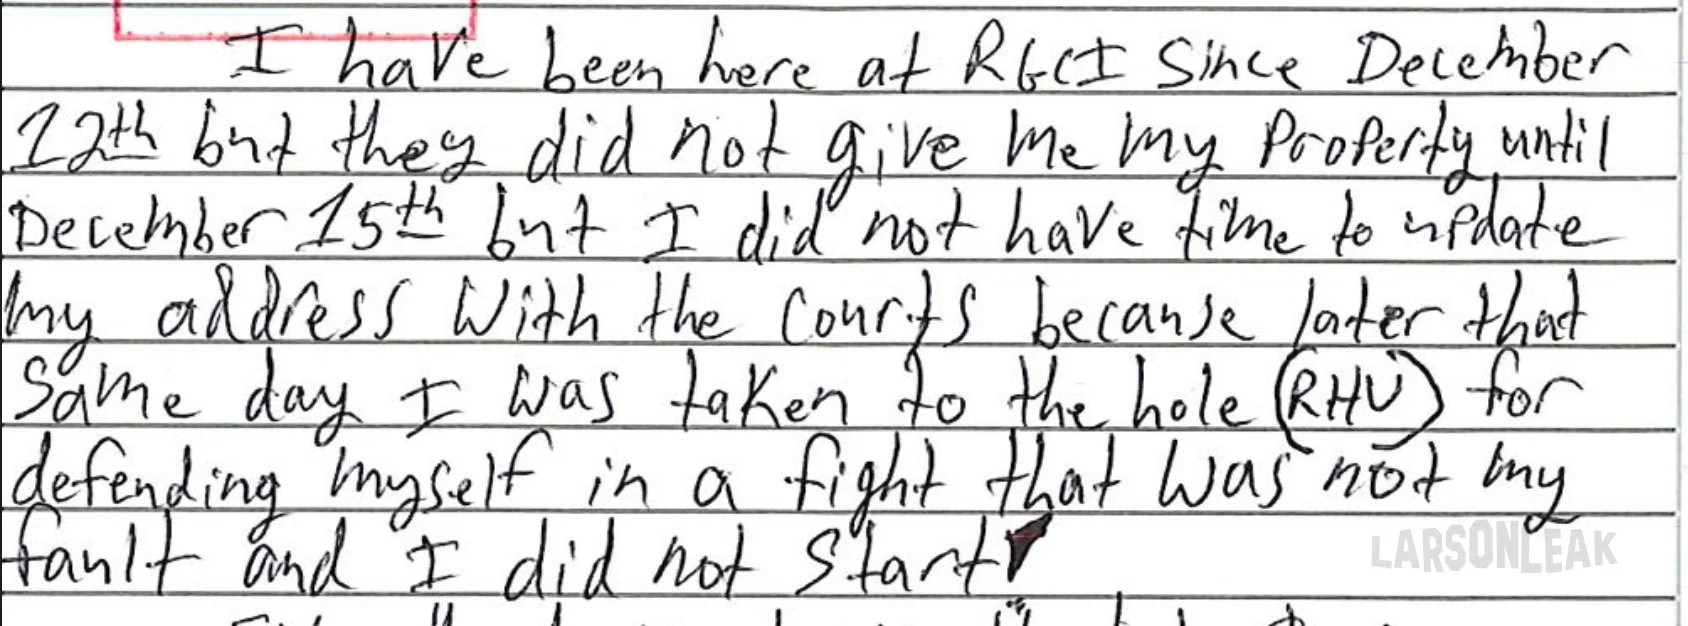 I have been here at RGCI Since December
12th but they did not give me my Property until
December 15th but I did not have time to update
my address With the Courts because later that
Same day I was taken to the hole (RHU) for
defending myself in a fight that was not my
fault and I did not Start
LARSONLEAK